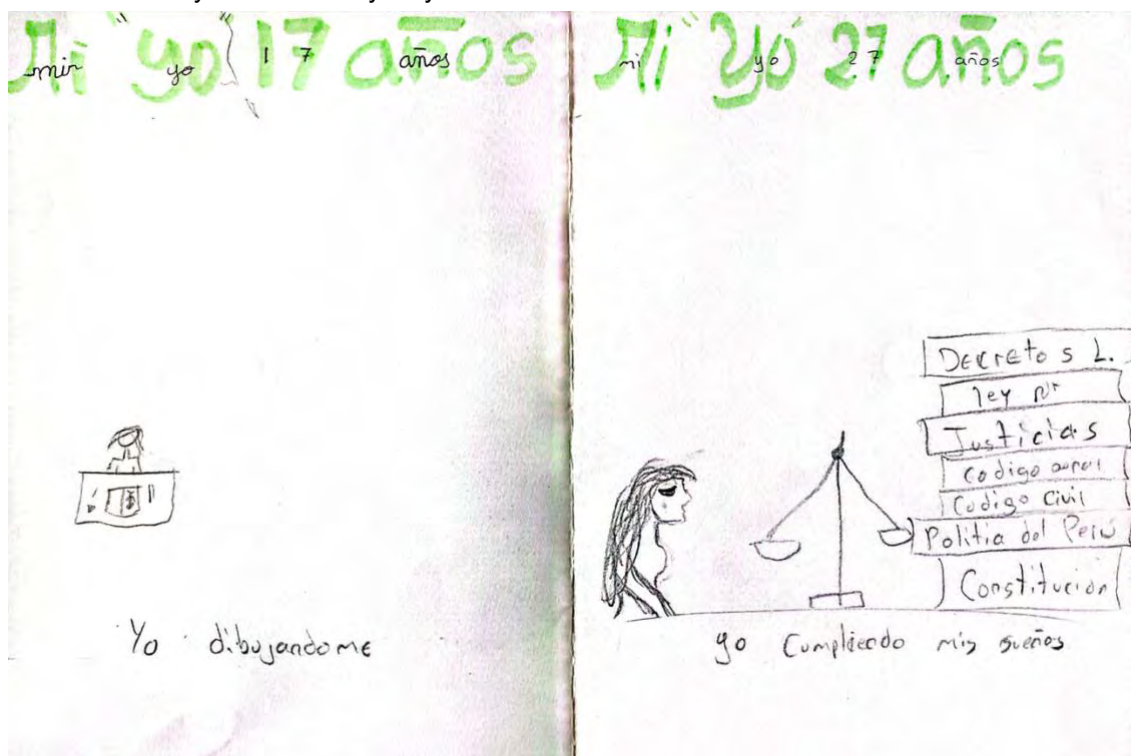 Mi "yo" 17 años
min yo 17 años
Yo dibujandome
Mi "Yo" 27 años
mi yo 27 años
Decretos L.
ley Nr
Justicias
Codigo
Codigo Civil
Politia del Perú
Constitución
yo Cumpliendo mis sueños